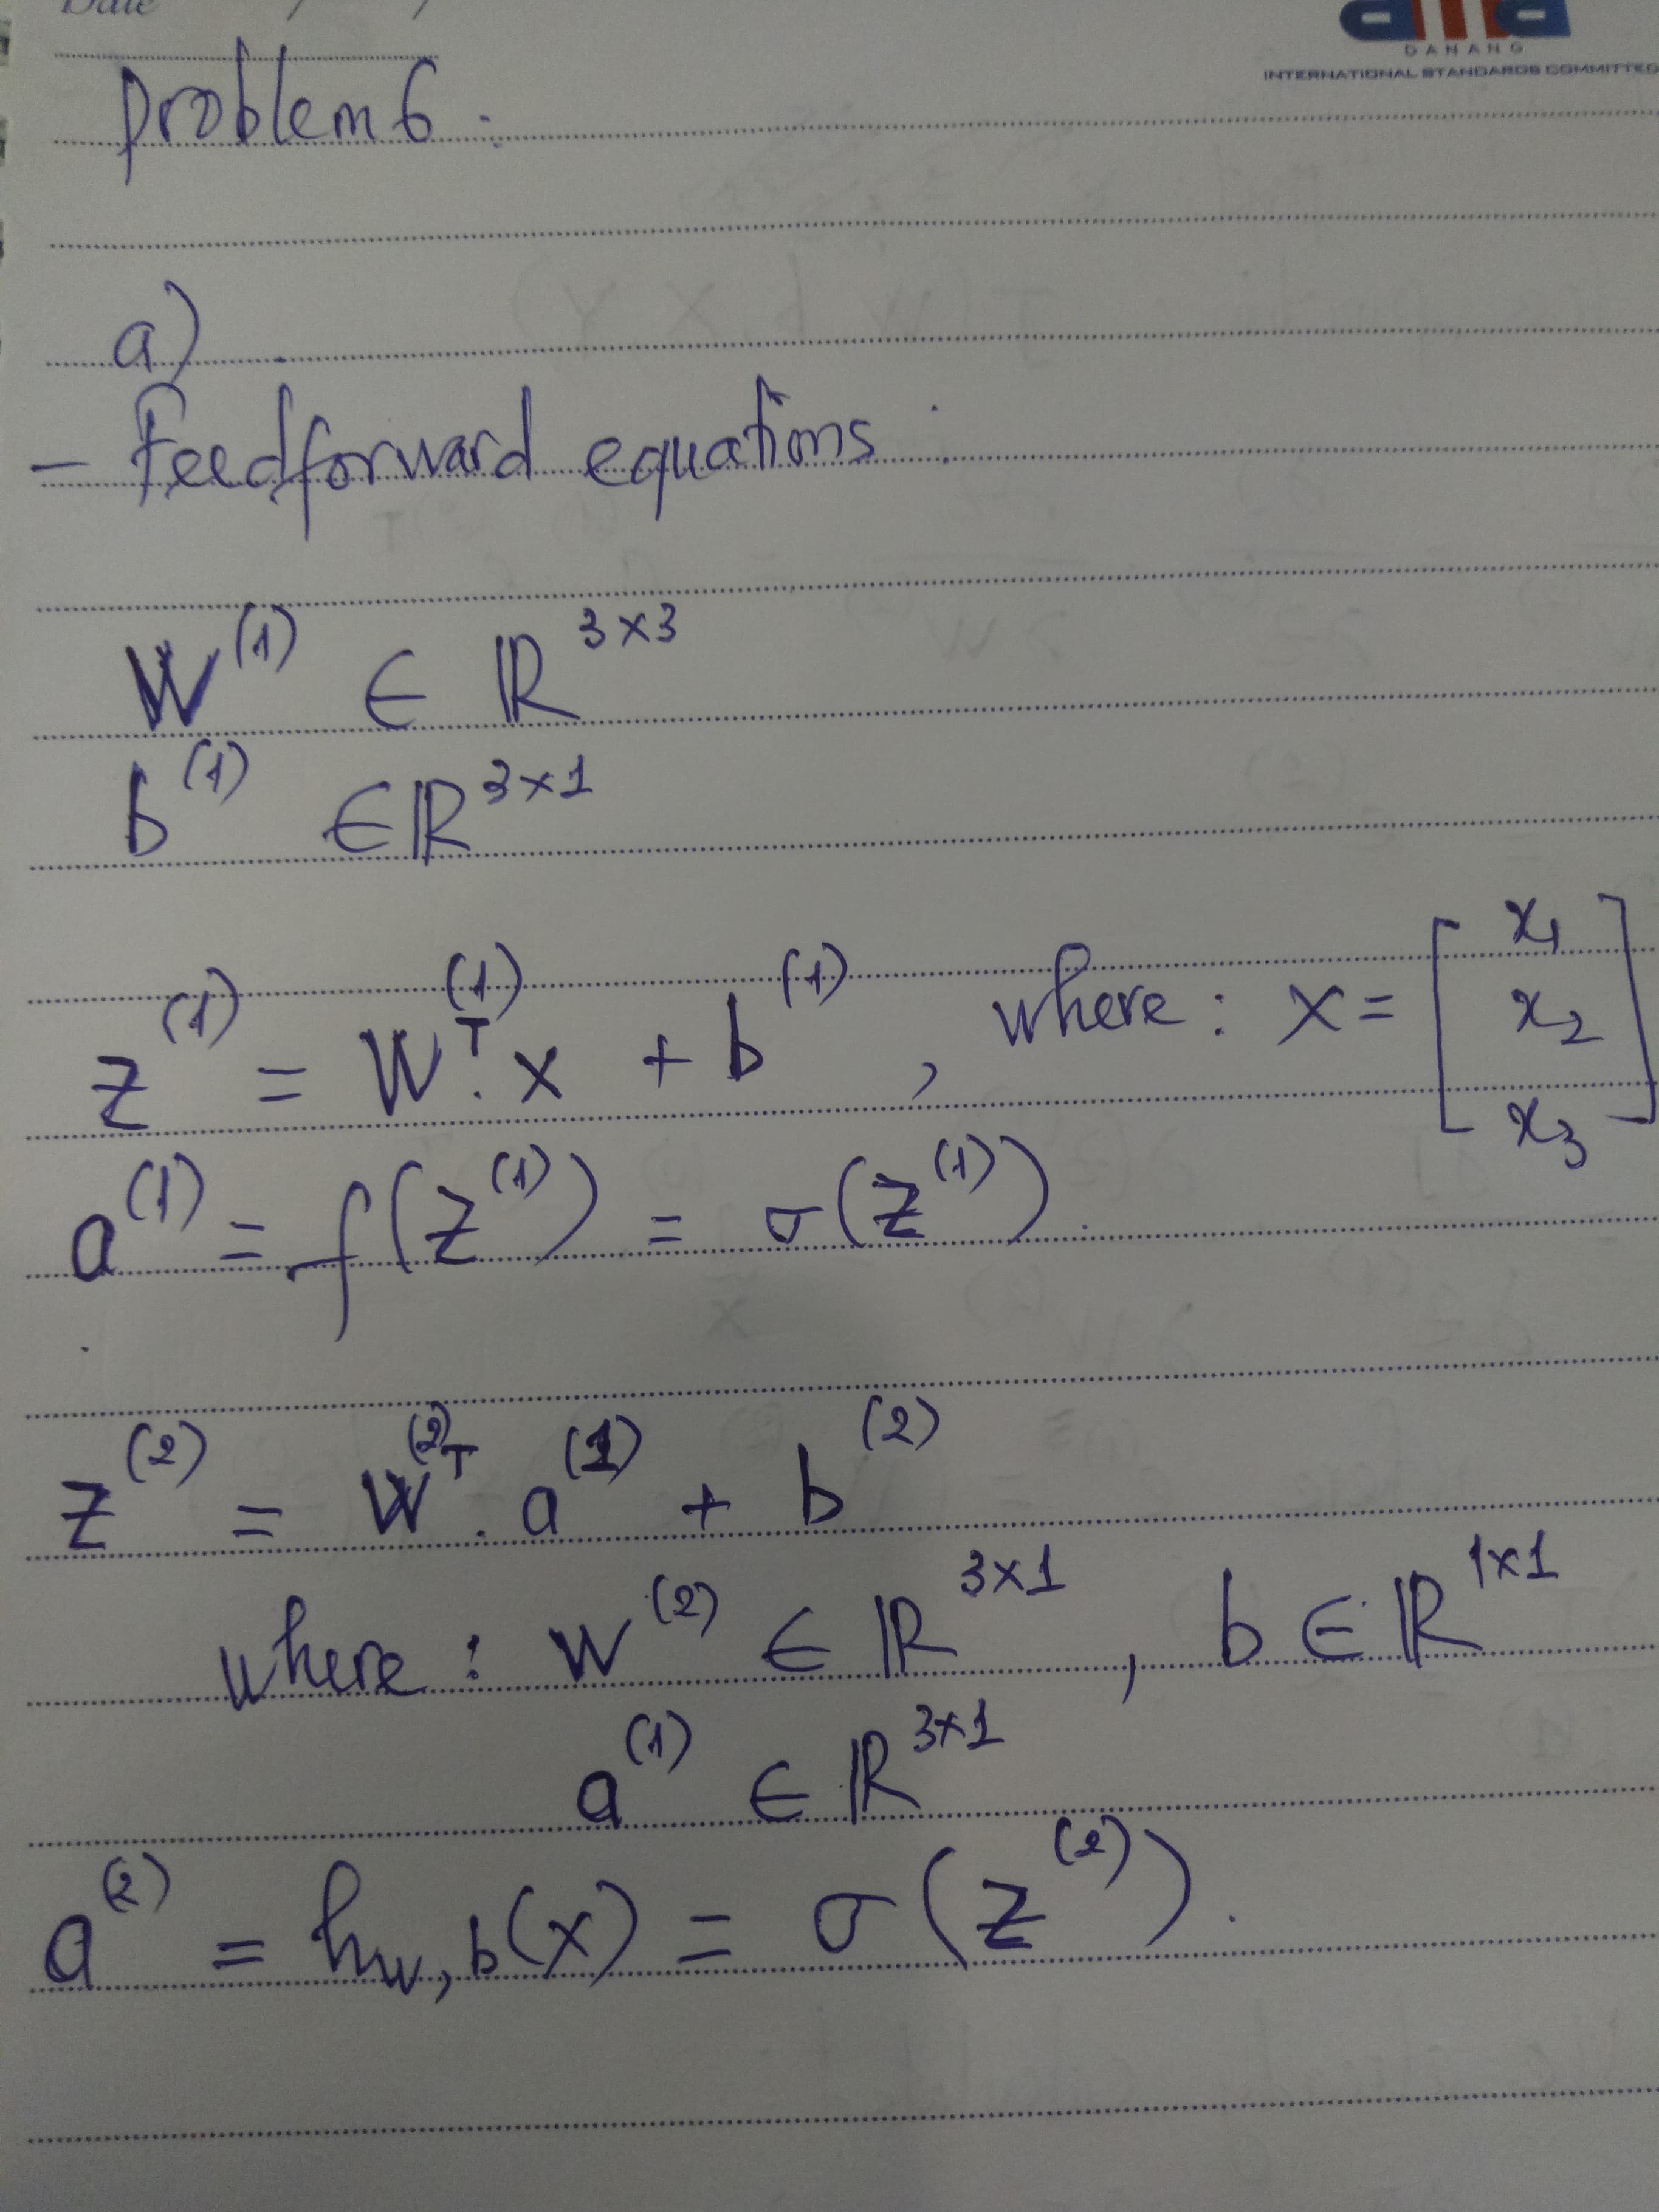 Date / /
DANANG
INTERNATIONAL STANDARDS COMMITTEE
Problem 6 :
a)
- Feedforward equations :
W^(1) ∈ ℝ^3×3
b^(1) ∈ ℝ^3×1
z^(1) = W^(1)T . x + b^(1) , where : x = [x1 x2 x3]
a^(1) = f(z^(1)) = σ(z^(1)).
z^(2) = W^(2)T . a^(1) + b^(2)
where : W^(2) ∈ ℝ^3×1 , b ∈ ℝ^1×1
a^(1) ∈ ℝ^3×1
a^(2) = h_w,b(x) = σ(z^(2)).